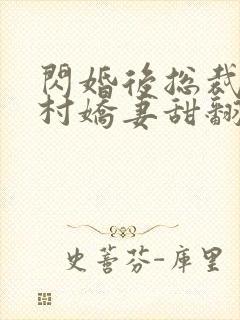 閃婚後总裁
村嬌妻甜翻
史蕾芬-庫里